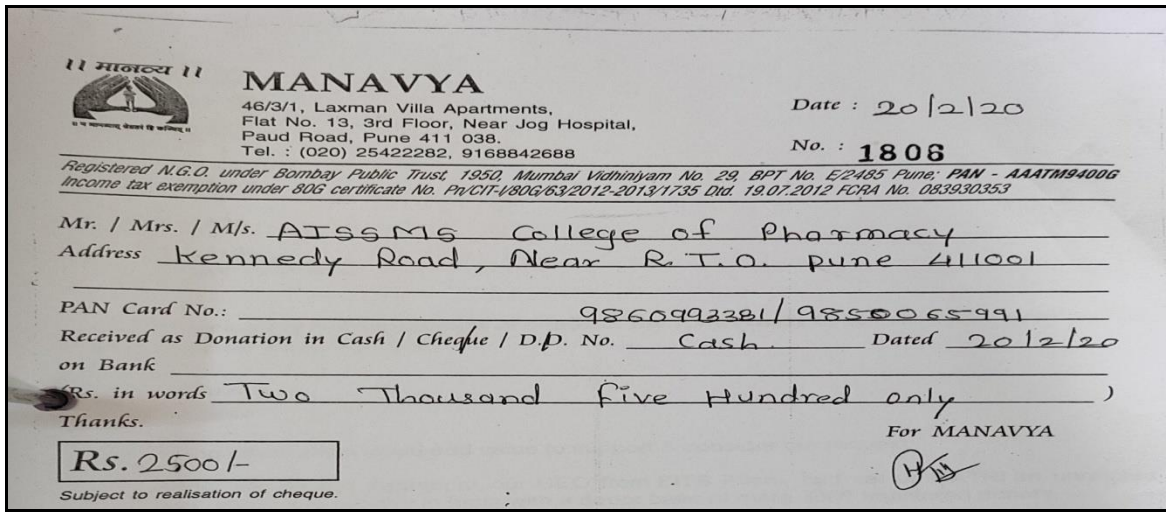 ।। मानव्य ।।
MANAVYA
46/3/1, Laxman Villa Apartments,
Flat No. 13, 3rd Floor, Near Jog Hospital,
Paud Road, Pune 411 038.
Tel. : (020) 25422282, 9168842688
Date : 20/2/20
No. : 1806
Registered N.G.O. under Bombay Public Trust, 1950, Mumbai Vidhiniyam No. 29, BPT No. E/2485 Pune; PAN - AAATM9400G
Income tax exemption under 80G certificate No. Pn/CIT-I/80G/63/2012-2013/1735 Dtd. 19.07.2012 FCRA No. 083930353
Mr. / Mrs. / M/s. AISSMS College of Pharmacy
Address Kennedy Road, Near R.T.O. pune 411001
PAN Card No.: 9860993381/9850065991
Received as Donation in Cash / Cheque / D.D. No. Cash Dated 20/2/20
on Bank
(Rs. in words Two Thousand five Hundred only )
Thanks.
For MANAVYA
Rs. 2500/-
Subject to realisation of cheque.